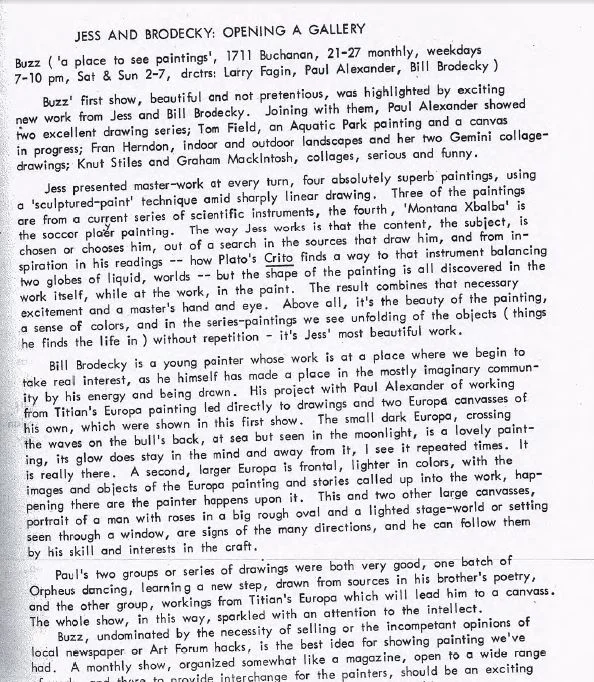 JESS AND BRODECKY: OPENING A GALLERY
Buzz ( 'a place to see paintings', 1711 Buchanan, 21-27 monthly, weekdays
7-10 pm, Sat & Sun 2-7, drctrs: Larry Fagin, Paul Alexander, Bill Brodecky )
Buzz' first show, beautiful and not pretentious, was highlighted by exciting
new work from Jess and Bill Brodecky. Joining with them, Paul Alexander showed
two excellent drawing series; Tom Field, an Aquatic Park painting and a canvas
in progress; Fran Herndon, indoor and outdoor landscapes and her two Gemini collage-
drawings; Knut Stiles and Graham MackIntosh, collages, serious and funny.
Jess presented master-work at every turn, four absolutely superb paintings, using
a 'sculptured-paint' technique amid sharply linear drawing. Three of the paintings
are from a current series of scientific instruments, the fourth, 'Montana Xbalba' is
the soccor player painting. The way Jess works is that the content, the subject, is
chosen or chooses him, out of a search in the sources that draw him, and from in-
spiration in his readings -- how Plato's Crito finds a way to that instrument balancing
two globes of liquid, worlds -- but the shape of the painting is all discovered in the
work itself, while at the work, in the paint. The result combines that necessary
excitement and a master's hand and eye. Above all, it's the beauty of the painting,
a sense of colors, and in the series-paintings we see unfolding of the objects ( things
he finds the life in ) without repetition - it's Jess' most beautiful work.
Bill Brodecky is a young painter whose work is at a place where we begin to
take real interest, as he himself has made a place in the mostly imaginary commun-
ity by his energy and being drawn. His project with Paul Alexander of working
from Titian's Europa painting led directly to drawings and two Europa canvasses of
his own, which were shown in this first show. The small dark Europa, crossing
the waves on the bull's back, at sea but seen in the moonlight, is a lovely paint-
ing, its glow does stay in the mind and away from it, I see it repeated times. It
is really there. A second, larger Europa is frontal, lighter in colors, with the
images and objects of the Europa painting and stories called up into the work, hap-
pening there are the painter happens upon it. This and two other large canvasses,
portrait of a man with roses in a big rough oval and a lighted stage-world or setting
seen through a window, are signs of the many directions, and he can follow them
by his skill and interests in the craft.
Paul's two groups or series of drawings were both very good, one batch of
Orpheus dancing, learning a new step, drawn from sources in his brother's poetry,
and the other group, workings from Titian's Europa which will lead him to a canvass.
The whole show, in this way, sparkled with an attention to the intellect.
Buzz, undominated by the necessity of selling or the incompetant opinions of
local newspaper or Art Forum hacks, is the best idea for showing painting we've
had. A monthly show, organized somewhat like a magazine, open to a wide range
and there to provide interchange for the painters, should be an exciting